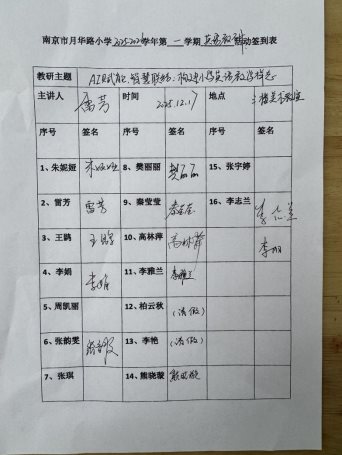 南京市月华路小学2025-2026学年第一学期英语教研活动签到表
教研主题 AI赋能 智慧联结，构建小学英语教学样态
主讲人 雷芳 时间 2025.12.17 地点 三楼
序号 签名 序号 签名 序号 签名
1、朱妮娅 朱妮娅 8、樊丽丽 樊丽丽 15、张宇婷
2、雷芳 雷芳 9、秦莹莹 秦莹莹 16、李志兰 李志兰
3、王鹍 王鹍 10、高林萍 高林萍 李
4、李娟 李娟 11、李雅兰 李雅兰
5、周凯丽 12、柏云秋 (请假)
6、张韵雯 张韵雯 13、李艳 (请假)
7、张琪 14、熊晓璇 熊晓璇